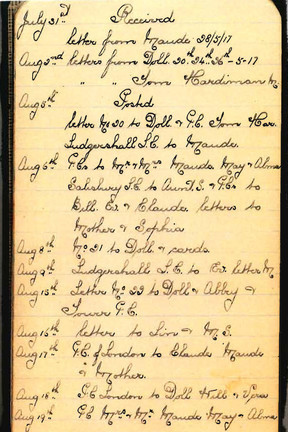 July 31st Received
letter from Maude 28/5/17
Aug 2nd letters from Doll 20th 24th 26th -5-17
" " Tom Hardiman
Aug 3rd Postd
letter No 20 to Doll & P.C. Tom Har.
Ludgershall P.C. to Maude.
Aug 5th P.Cs to Mr & Mrs Maude May & Alma
Salisbury P.C to Aunt S. & P.Cs to
Bill. Er & Claude. letters to
Mother & Sophia
Aug 8th No 21 to Doll & cards.
Aug 9th Ludgershall P.C. to Er. letter M
Aug 13th Letter No 22 to Doll & Abbey &
Tower P.C.
Aug 15th letter to Lin & M. E.
Aug 17th P.C. of London to Claude Maude
& Mother.
Aug 18th P.C London to Doll Will & Vera
Aug 19th P.C Mrs & Mr Maude May & Alma